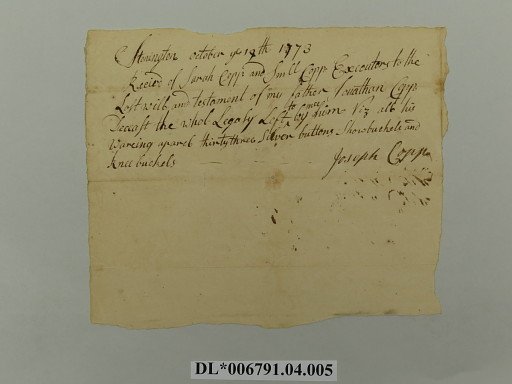 Stonington october ye 19th 1773
Receed of Sarah Copp and Smll Copp Executors to the
Last will and testament of my father Jonathan Copp
Deceast the whol Legasy Left to me by him Viz all his
Wareing aparel thirtythree Silver buttons Shoobuckels and
knee buckels
Joseph Copp
DL*006791.04.005